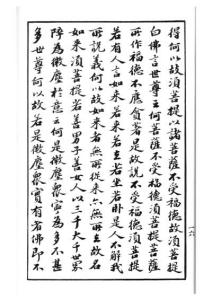 得何以故須菩提以諸菩薩不受福德故須菩提
白佛言世尊云何菩薩不受福德須菩提菩薩
所作福德不應貪著是故說不受福德須菩提
若有人言如來若來若去若坐若卧是人不解我
所說義何以故如來者無所從來亦無所去故名
如來須菩提若善男子善女人以三千大千世界
碎為微塵於意云何是微塵眾寧為多不甚
多世尊何以故若是微塵眾實有者佛即不